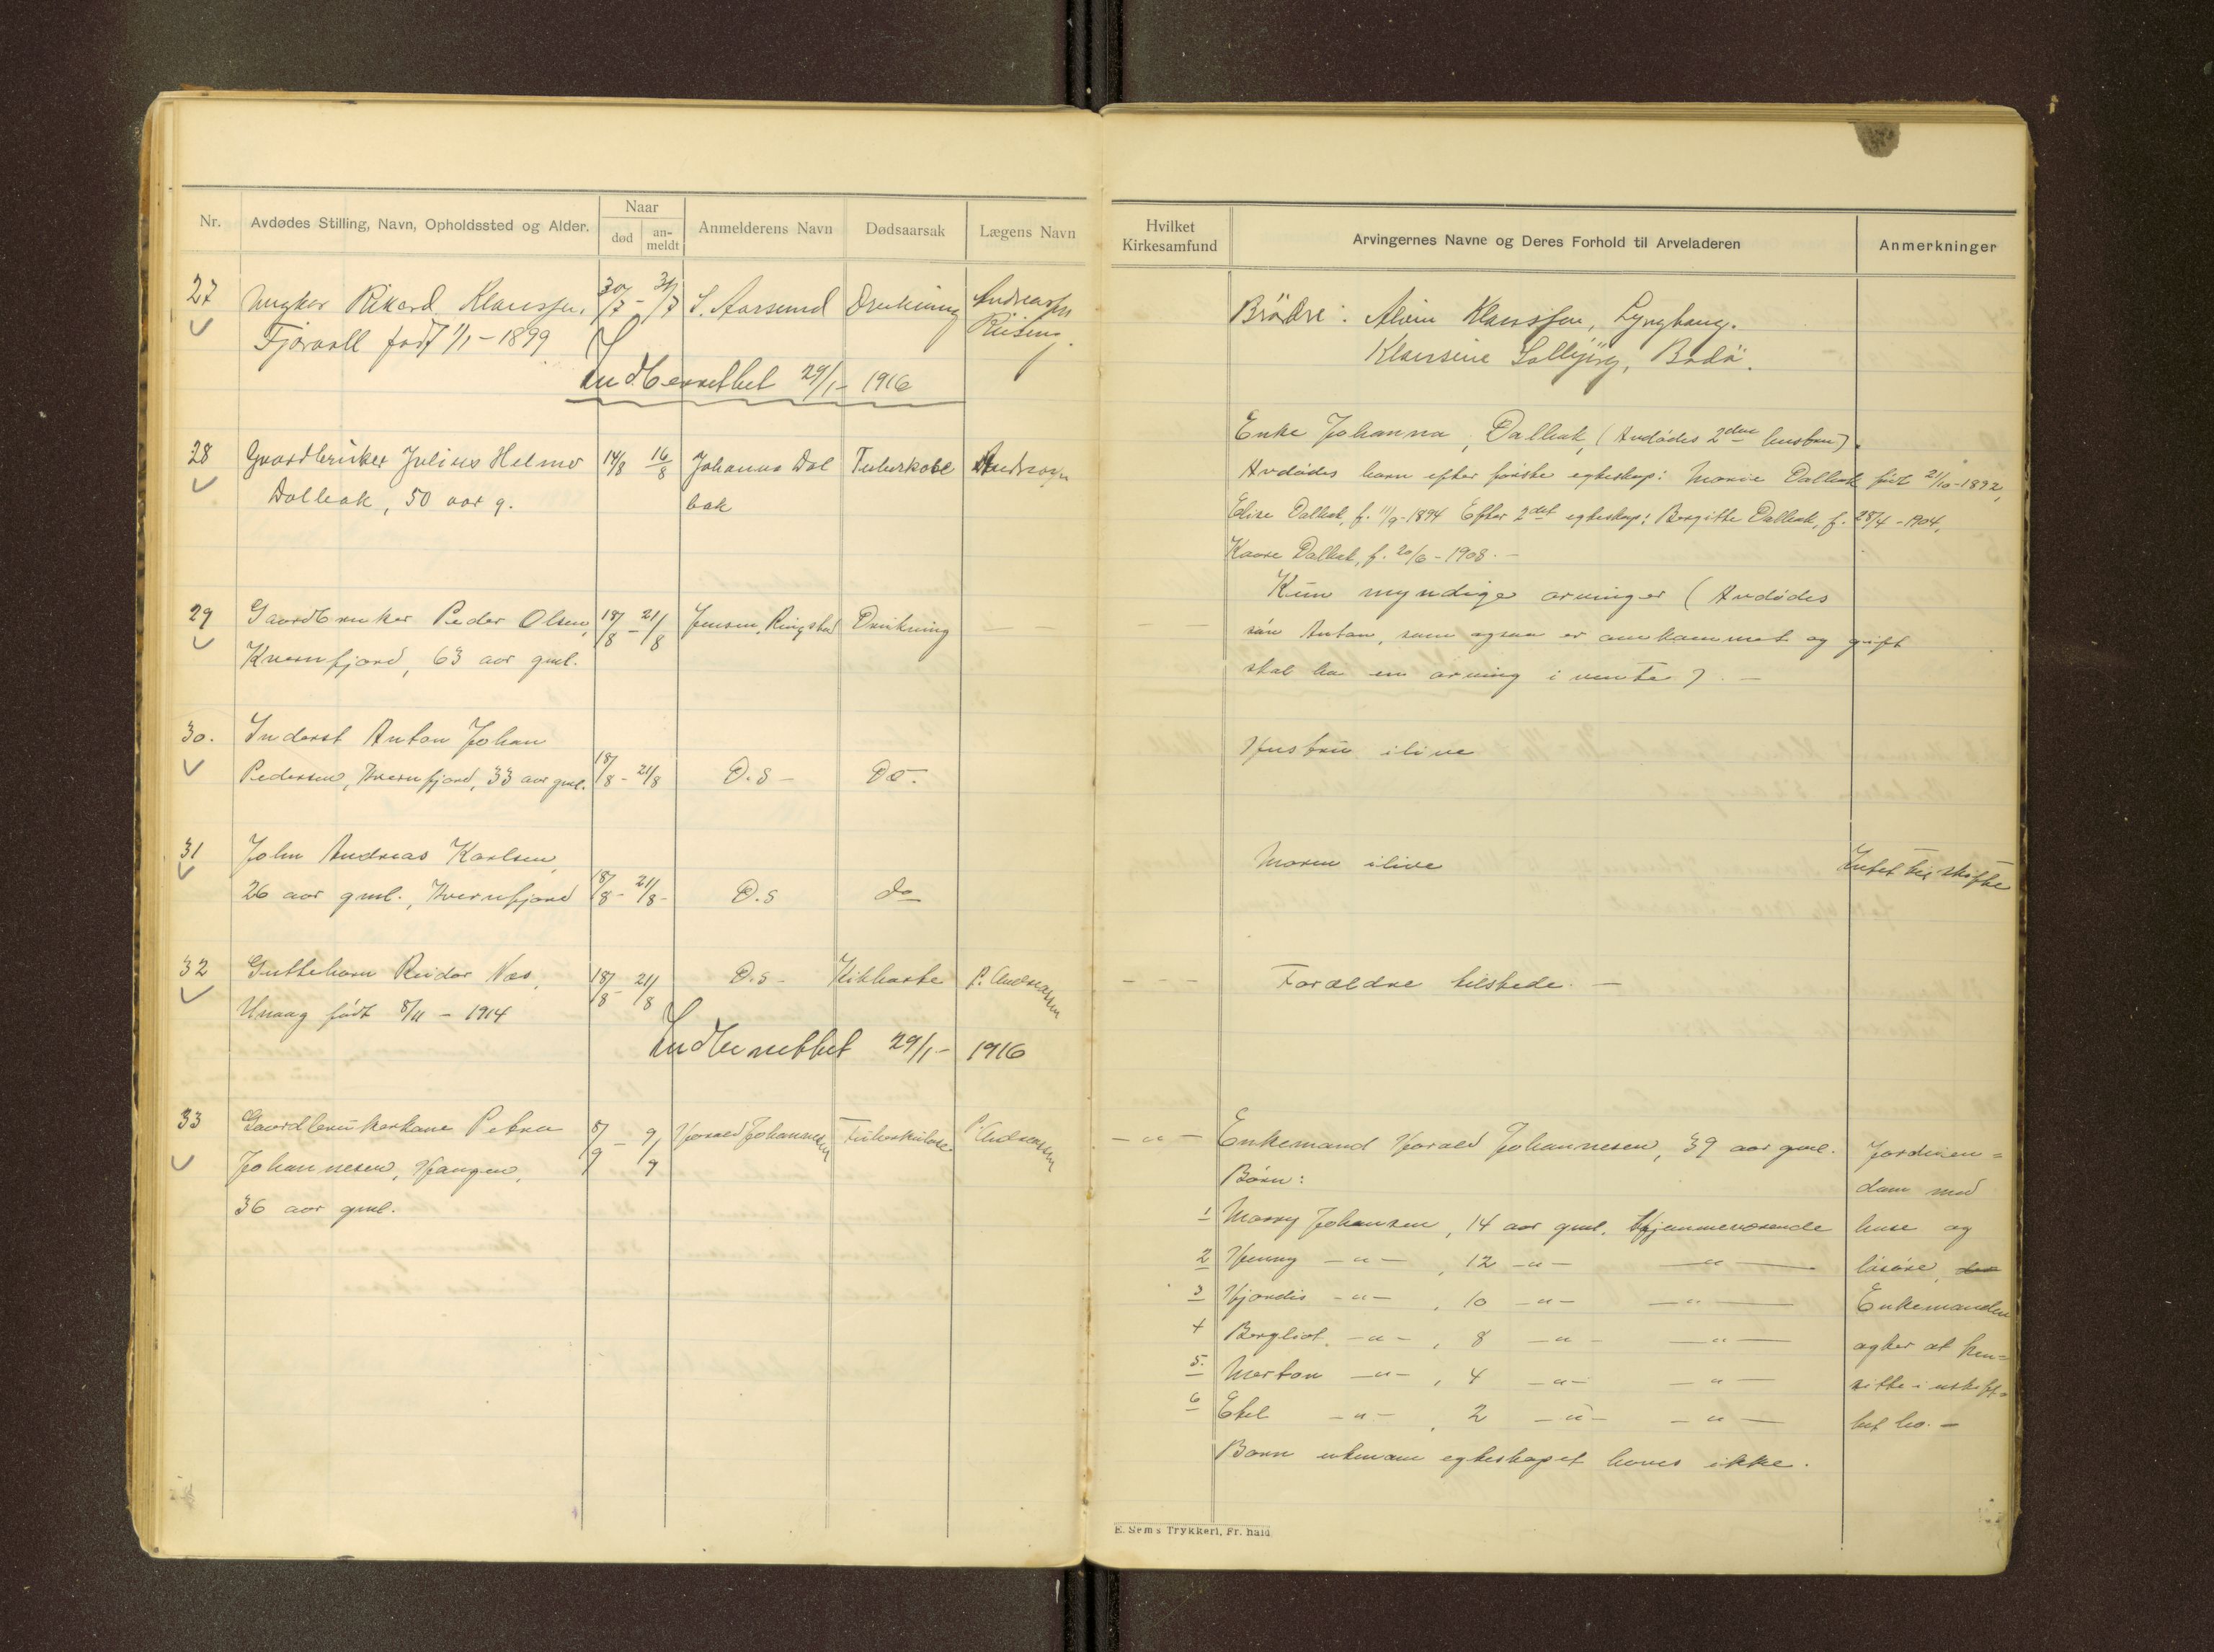 Nr.
Avdødes Stilling, Navn, Opholdssted og Alder.
Naar
død
an-
meldt
Anmelderens Navn
Dødsaarsak
Lægens Navn
27
Ungkar Rikard Klaussen,
30/7 - 31/7
S. Aarsund
Drukning
Andreassen
Fjæravll født 1/1 - 1899
Indberettet 29/1 - 1916
28
Gaardbruker Julius Helmer
14/8 16/8
Johanna Dal
bak
Tuberkose
Andreasen
Dalbak, 50 aar g.
29
Gaardbruker Peder Olsen,
18/8 - 21/8
Jensen, Ringstad
Drukning
Kvernfjord, 63 aar gml.
30.
Inderst Anton Johan
Pedersen, Kvernfjord, 33 aar gml.
18/8 - 21/8
D.S -
Do.
31
John Andreas Karlsen,
26 aar gml., Kvernfjord
18/8 - 21/8 -
D.S
do
32
Guttebarn Reidar Næs,
18/8 - 21/8
D.S -
Kikhoste
P. Andreassen
Unaag født 8/11 - 1914
Indberettet 29/1 - 1916
33
Gaardbrukerkone Petra
8/9 - 9/9
Harald Johannesen
Tuberkulose.
P. Andreassen
Johannesen, Haugen,
36 aar gml.
Hvilket
Kirkesamfund
Arvingernes Navne og Deres Forhold til Arveladeren
Anmerkninger
Brödre: Alvin Klaussen, Lynghaug.
Klausine Solbjörg, Bodö.
Enke Johanna, Dalbak, (Avdødes 2den hustru).
Avdødes barn efter første egteskap: Marie Dalbak født 21/10 - 1892,
Elise Dalbak, f. 11/9 - 1894 Efter 2det egteskap: Bergitte Dalbak, f. 28/4 - 1904,
Kaare Dalbak, f. 20/6 - 1908. -
Kun myndige arvinger (Avdødes
søn Anton, som ogsaa er omkommet og gift
skal ha en arving i vente). -
Hustru ilive
Moren ilive
Intet til skifte
- - -
Forældre tilstede. -
- " -
Enkemand Harald Johannesen, 39 aar gml.
Børn:
1 Marry Johansen, 14 aar gml. Hjemmeværende
2 Henny - " - , 12 - " - - " -
3 Hjørdis - " - , 10 - " - - " -
4 Bergliot, - " - , 8 - " - - " -
5. Morton - " - , 4 - " - - " -
6 Etel - " - , 2 - " - - " -
Barn utenom egteskapet haves ikke.
Jordeien=
dom med
huse og
løsøre,
Enkemanden
agter at hen=
sitte i uskif=
tet bo. -
E. Sem s Trykkeri, Fr. hald